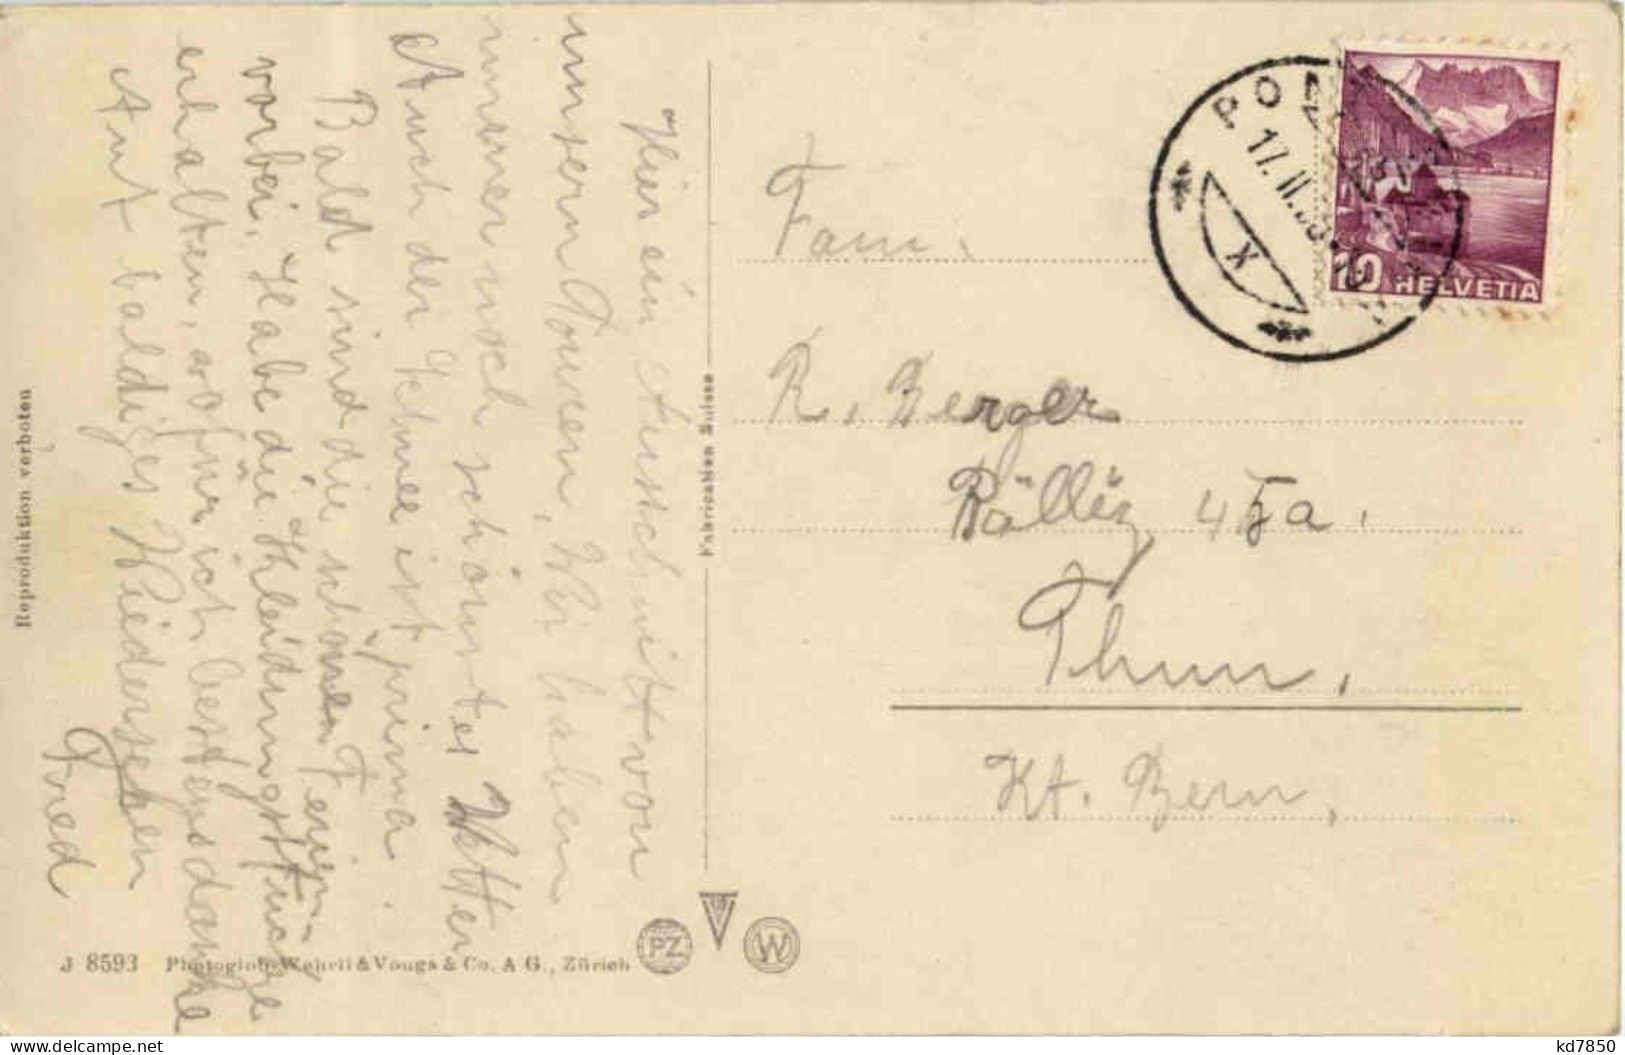 Hier ein Ausschnitt von
unsern Touren, Wir haben
immer noch schönstes Wetter
Auch der Schnee ist prima.
Bald sind die schönen Ferien
vorbei, Habe die Kleidungsstücke
erhalten, wofür ich bestens danke
Auf baldiges Wiedersehen
Fried
Reproduktion verboten
Fabrication Suisse
J 8593 Photoglob-Wehrli & Vouga & Co. A G., Zürich
PZ
W
PON
17. II.
X
10 HELVETIA
Fam.
R. Berger
Bälliz 45a.
Thun,
Kt. Bern,
delcampe.net
kd7850